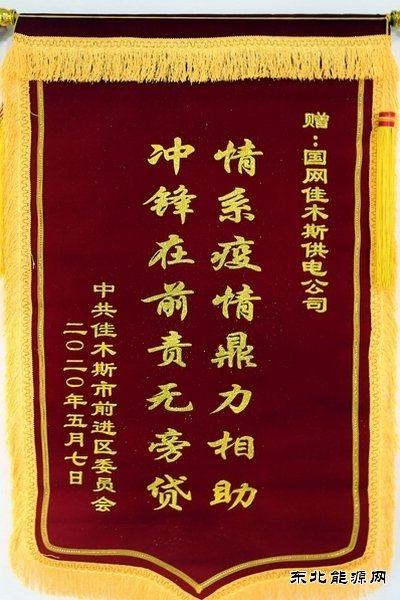 赠：国网佳木斯供电公司
情系疫情鼎力相助
冲锋在前责无旁贷
中共佳木斯市前进区委员会
二〇二〇年五月七日
东北能源网